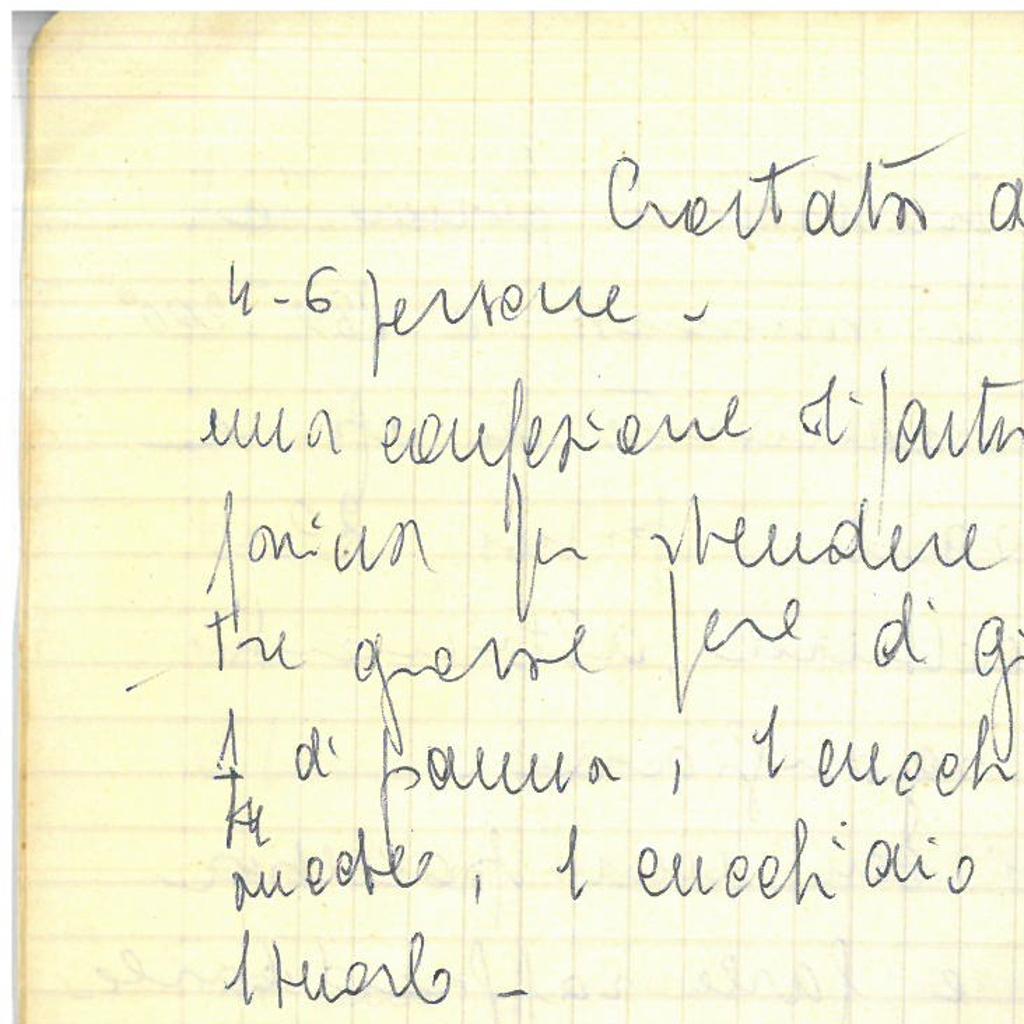 Crostata d
4-6 persone -
una confezione di pasta
farina per stendere
tre grosse pere di gi
1 di panna, 1 cucch
1/4
zucchero, 1 cucchiaio
1 tuorlo -